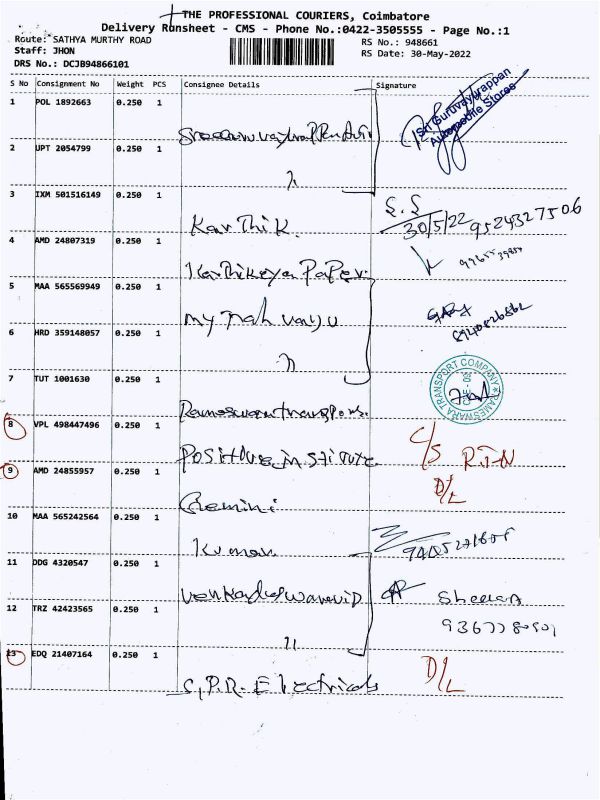 THE PROFESSIONAL COURIERS, Coimbatore
Delivery Runsheet - CMS - Phone No.:0422-3505555 - Page No.:1
Route: SATHYA MURTHY ROAD
Staff: JHON
DRS No.: DCJB94866101
RS No.: 948661
RS Date: 30-May-2022
S No Consignment No Weight PCS Consignee Details Signature
1 POL 1892663 0.250 1
Sri Guruvayurappan
Automobile Stores
2 UPT 2054799 0.250 1
3 IXM 501516149 0.250 1
Karthik. S.S 30/5/22 9524327506
4 AMD 24807319 0.250 1
Karthikeya Paper
5 MAA 565569949 0.250 1
6 HRD 359148057 0.250 1
7 TUT 1001630 0.250 1
RAMESWARA TRANSPORT COMPANY
CBE-02
Rameswara transport.
8 VPL 498447496 0.250 1
Positive institute C/S R.T.N
9 AMD 24855957 0.250 1
Gemini D/L
10 MAA 565242564 0.250 1
Kumar
11 DDG 4320547 0.250 1
12 TRZ 42423565 0.250 1
13 EDQ 21407164 0.250 1
C.P.R. Electricals D/L